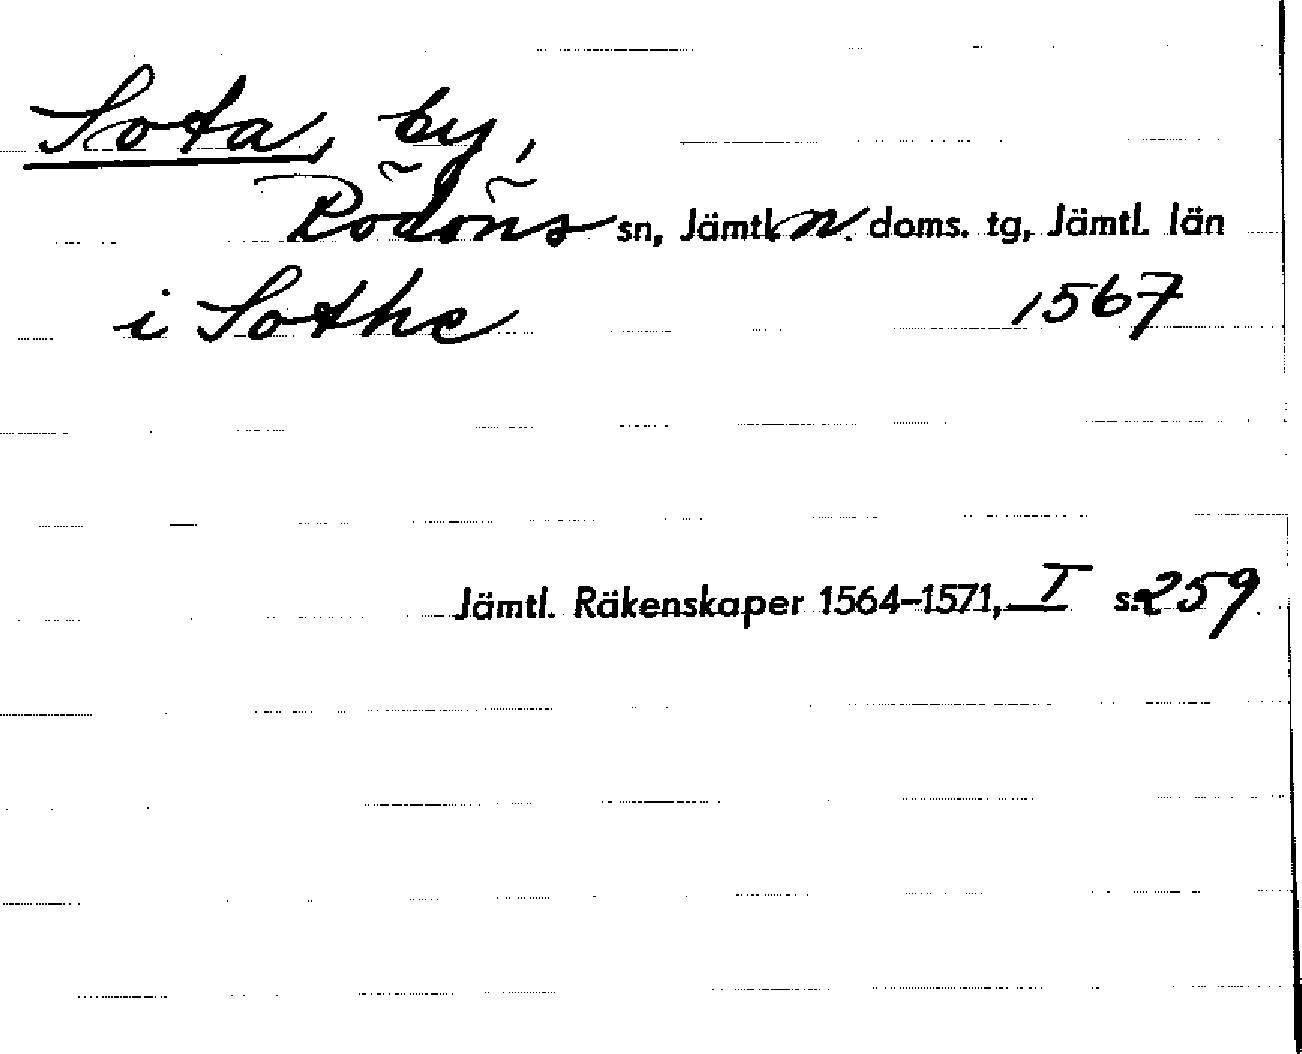 Sota, by,
Rödöns sn, Jämtl. n. doms. tg, Jämtl. län
i Sothe 1567
Jämtl. Räkenskaper 1564–1571, I s. 259